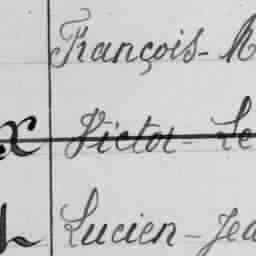 François - M
x Victor - Le
Lucien - Jea